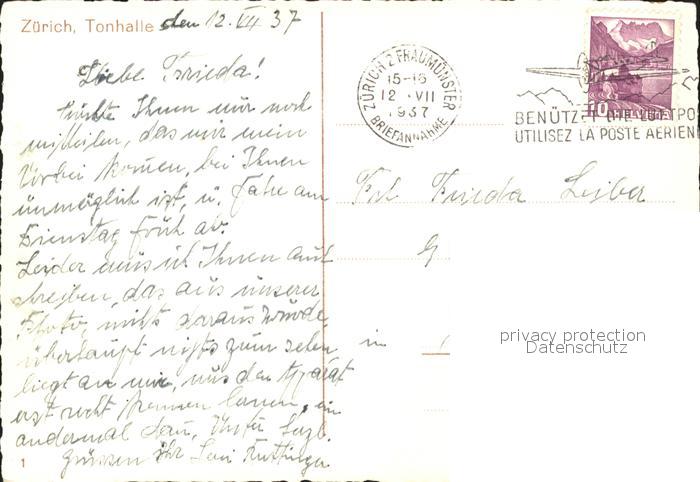 Zürich, Tonhalle den 12. VII 37
Liebe Frieda!
möchte Ihnen nur noch
mitteilen, das mir mein
Vorbei komen, bei Ihnen
unmöglich ist, u. fahre am
Dienstag früh ab.
Leider mus ich Ihnen auch
schreiben, das aus unserer
Photo, nichts daraus wurde,
überhaupt nichts zum sehen
liegt an mir, mus den Apparat
erst recht kennen lernen, ein
andermal dan,
grüssen Ihr
1
ZÜRICH 2 FRAUMÜNSTER
15-16
12. VII
1937
BRIEFANNAHME
10 HELVETIA
BENÜTZT DIE LUFTPO
UTILISEZ LA POSTE AERIEN
Frl Frieda Leiber
G
in
privacy protection
Datenschutz